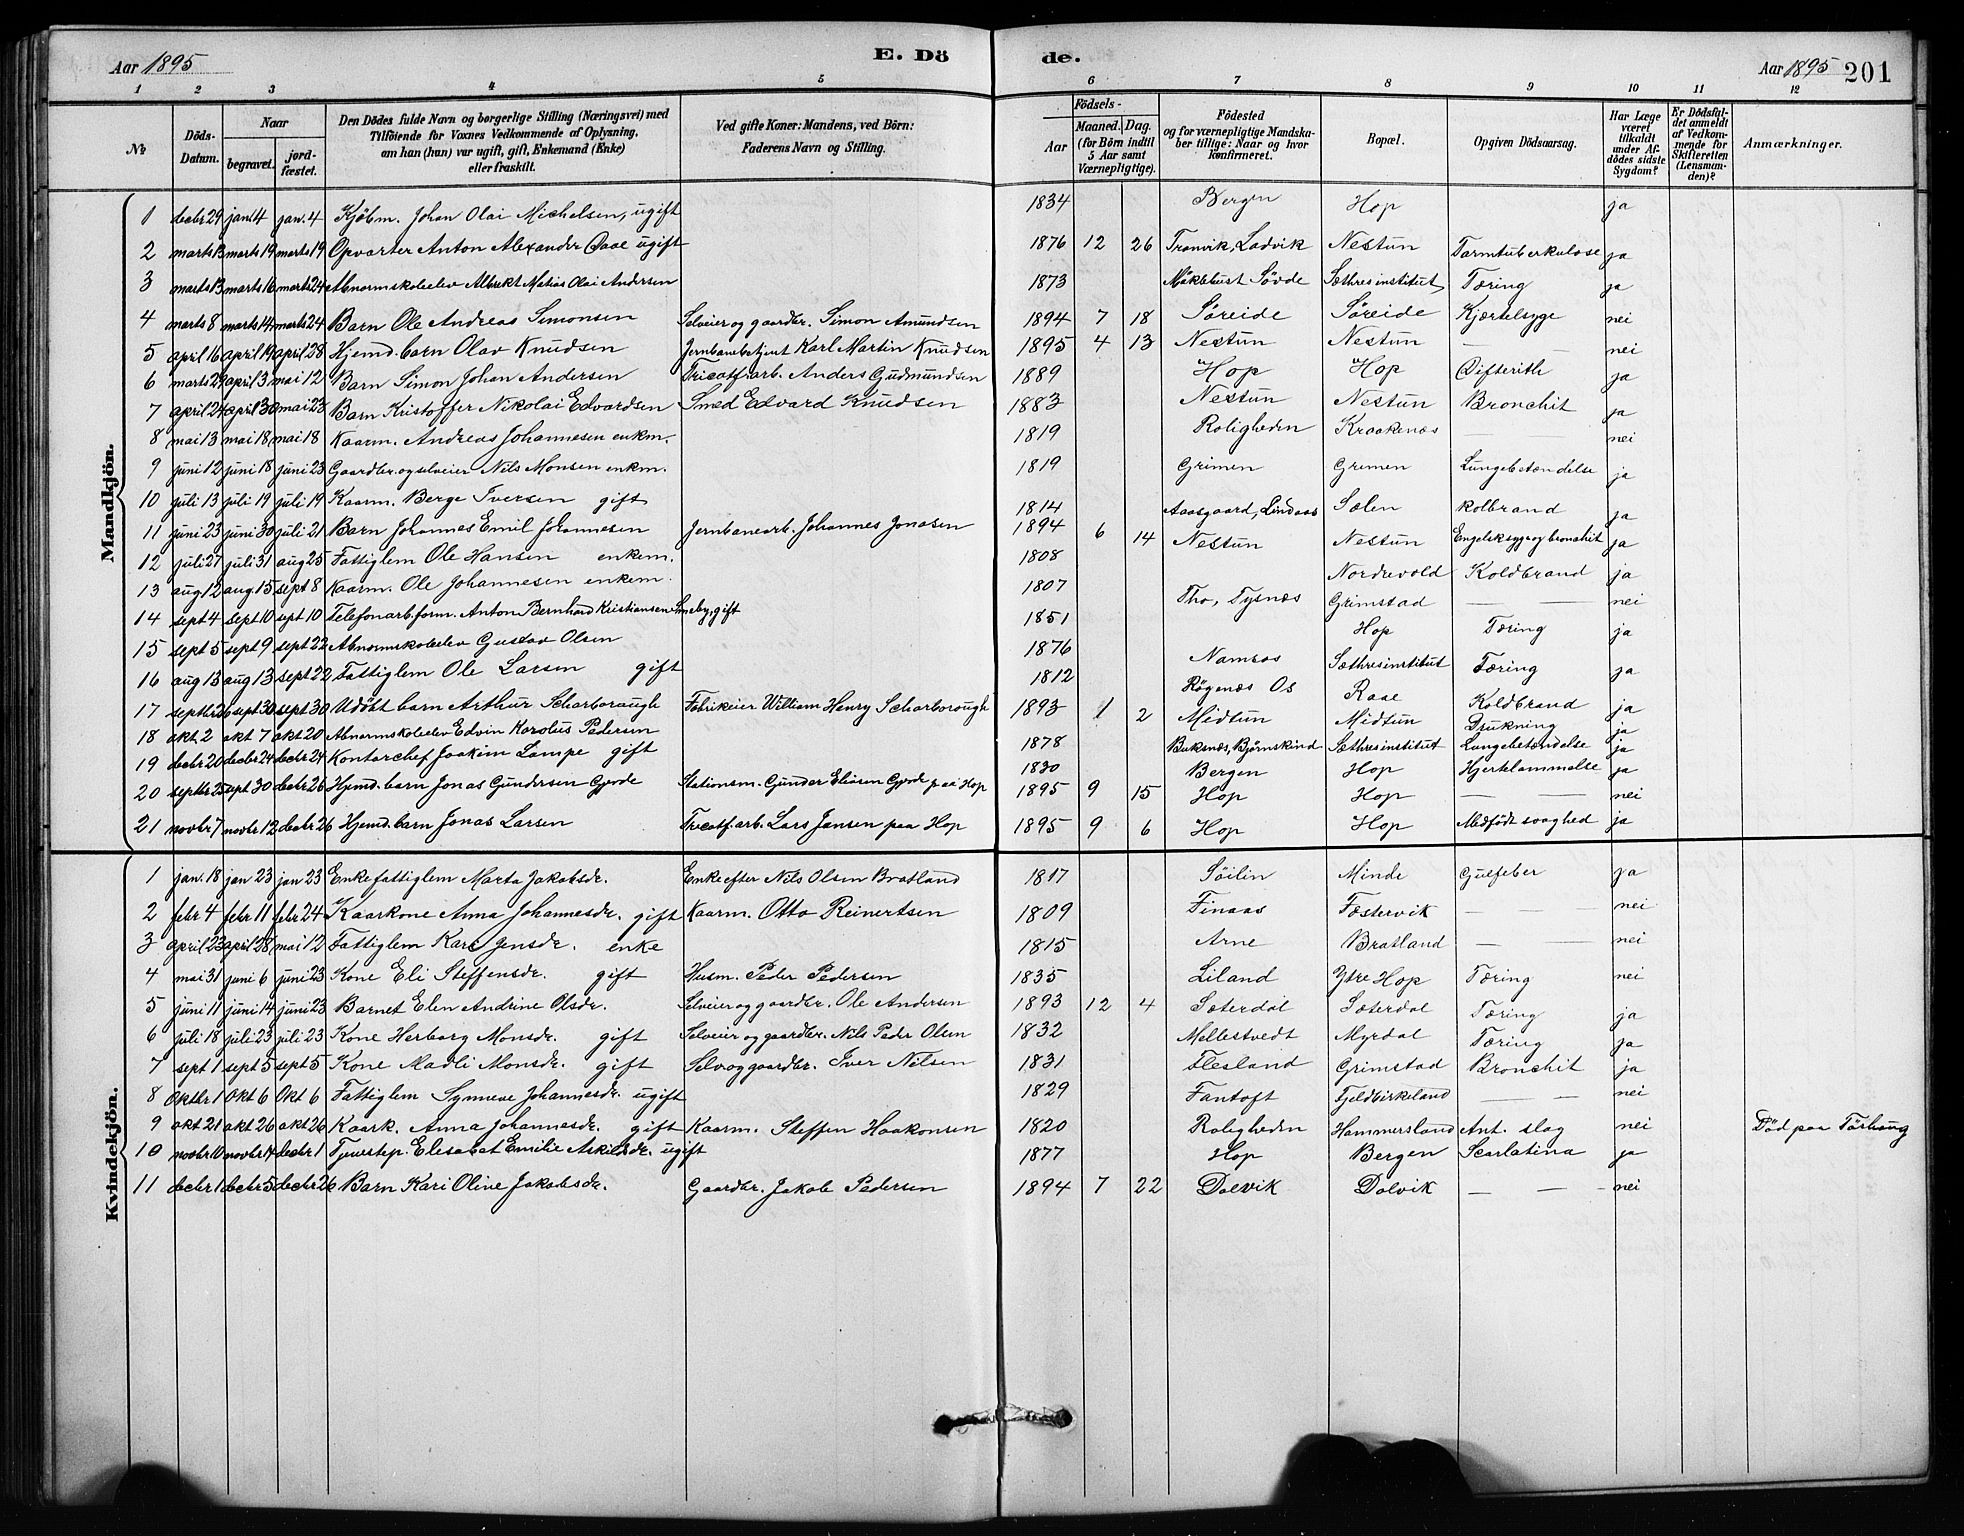 Aar 1895 E. Dö de. Aar 1895 201
1 2 3 4 5 6 7 8 9 10 11 12
№ Döds-Datum. Naar begravet. jordfæstet. Den Dödes fulde Navn og borgerlige Stilling (Næringsvei) med Tilföiende for Voxnes Vedkommende af Oplysning, om han (hun) var ugift, gift, Enkemand (Enke) eller fraskilt. Ved gifte Koner: Mandens, ved Börn: Faderens Navn og Stilling. Födsels- Aar Maaned. Dag. (for Börn indtil 5 Aar samt Værnepligtige). Födested og for værnepligtige Mandskaber tillige: Naar og hvor konfirmeret. Bopæl. Opgiven Dödsaarsag. Har Læge været tilkaldt under Afdödes sidste Sygdom? Er Dödsfaldet anmeldt af Vedkommende for Skifteretten (Lensmanden)? Anmærkninger.
Mandkjön.
1 decbr 29 jan 4 jan. 4 Kjöbm. Johan Olai Michelsen, ugift 1834 Bergen Hop ja
2 marts 13 marts 19 marts 19 Opvarter Anton Alexander Daae ugift 1876 12 26 Tronvik, Ladvik Nestun Tarmtuberkulose ja
3 marts 13 marts 16 marts 24 Abnormskoleelev Albrekt Matias Olai Andersen 1873 Möklebust Sövde Sæthresinstitut Tæring ja
4 marts 8 marts 14 marts 24 Barn Ole Andreas Simonsen Selveier og gaardbr. Simon Amundsen 1894 7 18 Söreide Söreide Kjertelsyge nei
5 april 16 april 19 april 28 Hjemd. barn Olav Knudsen Jernbanebetjent Karl Martin Knudsen 1895 4 13 Nestun Nestun — nei
6 marts 29 april 3 mai 12 Barn Simon Johan Andersen Tricotf.arb. Anders Gudmundsen 1889 Hop Hop Difterith ja
7 april 24 april 30 mai 23 Barn Kristoffer Nikolai Edvardsen Smed Edvard Knudsen 1883 Nestun Nestun Bronchit ja
8 mai 13 mai 18 mai 18 Kaarm. Andreas Johannesen enkm. 1819 Roligheden Kraakenæs — — nei
9 juni 12 juni 18 juni 23 Gaardbr. og selveier Nils Monsen enkm. 1819 Grimen Grimen Lungebetændelse ja
10 juli 13 juli 19 juli 19 Kaarm. Berge Iversen gift 1814 Aasgaard, Lindaas Sælen kolbrand ja
11 juni 23 juni 30 juli 21 Barn Johannes Emil Johannesen Jernbanearb. Johannes Jonasen 1894 6 14 Nestun Nestun Engelsksyge og bronchit ja
12 juli 27 juli 31 aug 25 Fattiglem Ole Hansen enkem. 1808 Nordrevold Koldbrand ja
13 aug 12 aug 15 sept 8 Kaarm. Ole Johannesen enkem. 1807 Tho, Tysnæs Grimstad — — nei
14 sept 4 sept 10 sept 10 Telefonarb.form. Anton Bernhard Kristiansen Smeby, gift 1851 Hop Tæring ja
15 sept 5 sept 9 sept 22 Abnormskoleelev Gustav Olsen 1876 Namsos Sæthresinstitut Tæring ja
16 aug 13 aug 13 sept 22 Fattiglem Ole Larsen gift 1812 Rögenæs Os Raae Koldbrand ja
17 septbr 26 sept 30 sept 30 Udöbt barn Arthur Scharborough Fabrikeier William Henry Scharborough 1893 1 2 Midtun Midtun Drukning ja
18 okt 2 okt 7 okt 20 Abnormskoleelev Edvin Karolus Pedersen 1878 Buksnæs, Björnskind Sæthresinstitut Lungebetændelse ja
19 decbr 20 decbr 24 decbr 24 Kontorchef Joakim Lampe gift 1830 Bergen Hop Hjertelammelse ja
20 septbr 25 sept 30 decbr 26 Hjemd. barn Jonas Gundersen Gjerde Stationsm. Gunder Eliasen Gjerde paa Hop 1895 9 15 Hop Hop — — nei
21 novbr 7 novbr 12 decbr 26 Hjemd. barn Jonas Larsen Tricotf.arb. Lars Jansen paa Hop 1895 9 6 Hop Hop Medfödt svaghed ja
Kvindekjön.
1 jan. 18 jan 23 jan 23 Enke fattiglem Marta Jakobsdr. Enke efter Nils Olsen Bratland 1817 Söilin Minde Gulfeber ja
2 febr 4 febr 11 febr 24 Kaarkone Anna Johannesdr. gift Kaarm. Otto Reinertsen 1809 Finaas Fæstervik — — nei
3 april 23 april 28 mai 12 Fattiglem Kari Jensdr. enke 1815 Arne Bratland — — nei
4 mai 31 juni 6 juni 23 Kone Eli Steffensdr. gift Husm. Peder Pedersen 1835 Liland Ytre Hop Tæring nei
5 juni 11 juni 14 juni 23 Barnet Elen Andrine Olsdr. Selveier og gaardbr. Ole Andersen 1893 12 4 Sæterdal Sæterdal Tæring ja
6 juli 18 juli 23 juli 23 Kone Herborg Monsdr. gift Selveier og gaardbr. Nils Peder Olsen 1832 Mellestvedt Myrdal Tæring ja
7 sept 1 sept 5 sept 5 Kone Madli Monsdr. gift Selv. og gaardbr. Iver Nilsen 1831 Flesland Grimstad Bronchit ja
8 Oktbr 1 Okt 6 Okt 6 Fattiglem Synneve Johannesdr. ugift 1829 Fantoft Fjeldbirkeland — — nei
9 okt 21 okt 26 okt 26 Kaark. Anna Johannesdr. gift Kaarm. Steffen Haakonsen 1820 Roligheden Hammersland Ant. slag nei Död paa
10 novbr 10 novbr 14 decbr 1 Tjenestep. Elesabet Emilie Askildsdr. ugift 1877 Hop Bergen Scarlatina ja
11 decbr 1 decbr 5 decbr 26 Barn Kari Oline Jakobsdr. Gaardbr. Jakob Pedersen 1894 7 22 Dolvik Dolvik — — nei